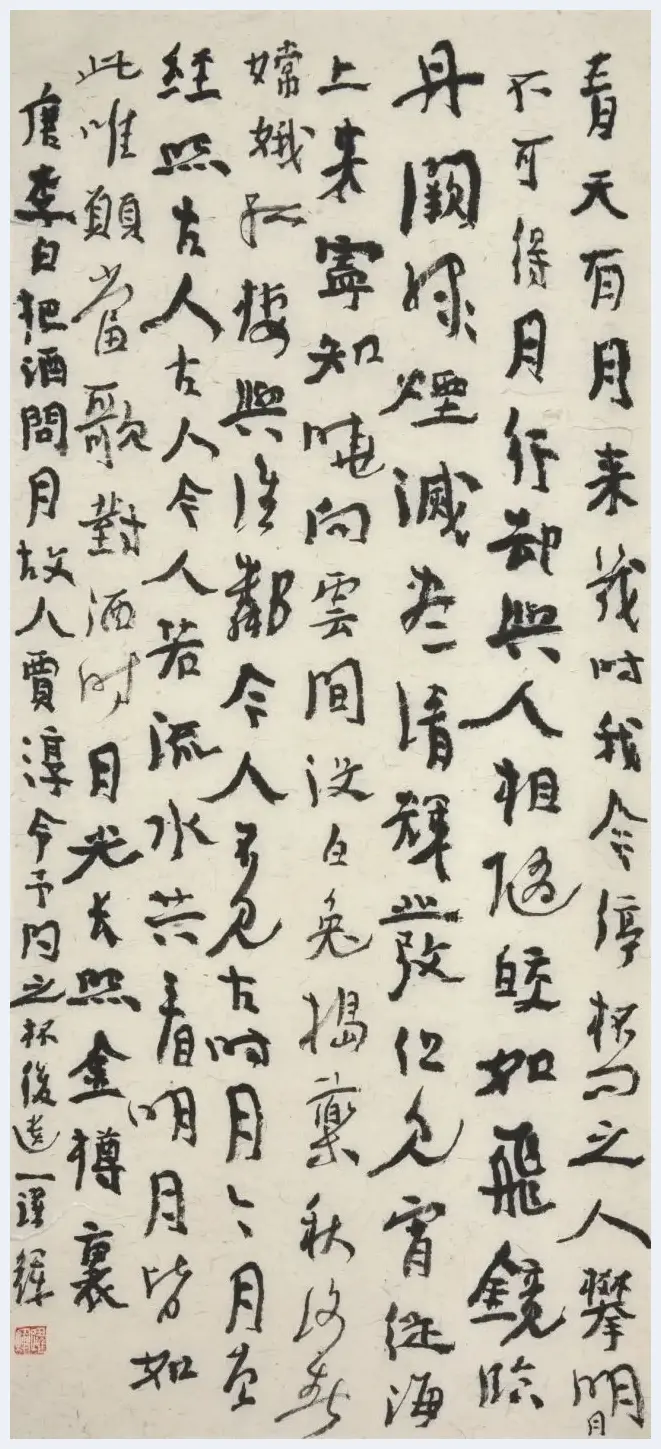 青天有月来幾时我今停杯问之人攀明月
不可得月行却與人相随皎如飛鏡臨
丹闕緑煙滅盡清輝發但見宵從海
上来寧知曉向雲間没白兔搗藥秋復春
嫦娥孤棲與誰鄰今人不見古时月今月曾
經照古人古人今人若流水共看明月皆如
此唯願當歌對酒时月光长照金樽裏
唐李白把酒問月故人賈淳令予问之